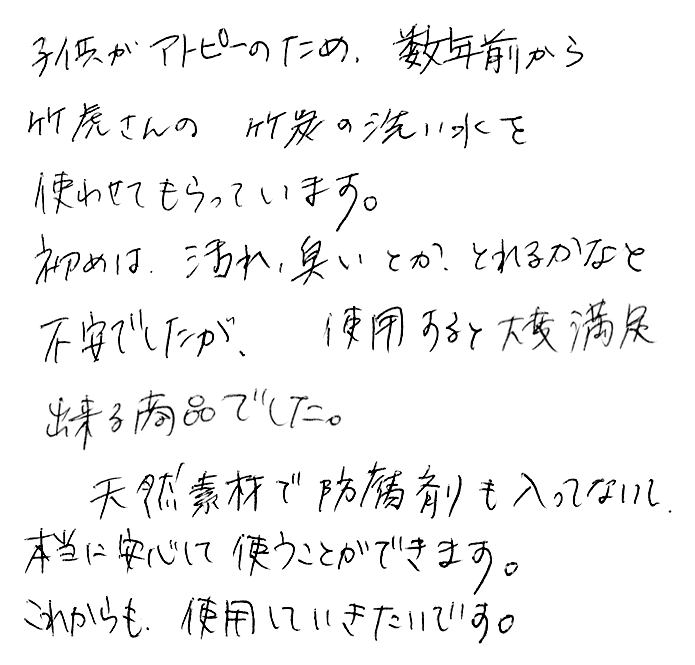 子供がアトピーのため、数年前から
竹虎さんの 竹炭の洗い水を
使わせてもらっています。
初めは、汚れ、臭いとか、とれるかなと
不安でしたが、 使用すると大変満足
出来る商品でした。
天然素材で防腐剤も入ってないし、
本当に安心して使うことができます。
これからも、使用していきたいです。